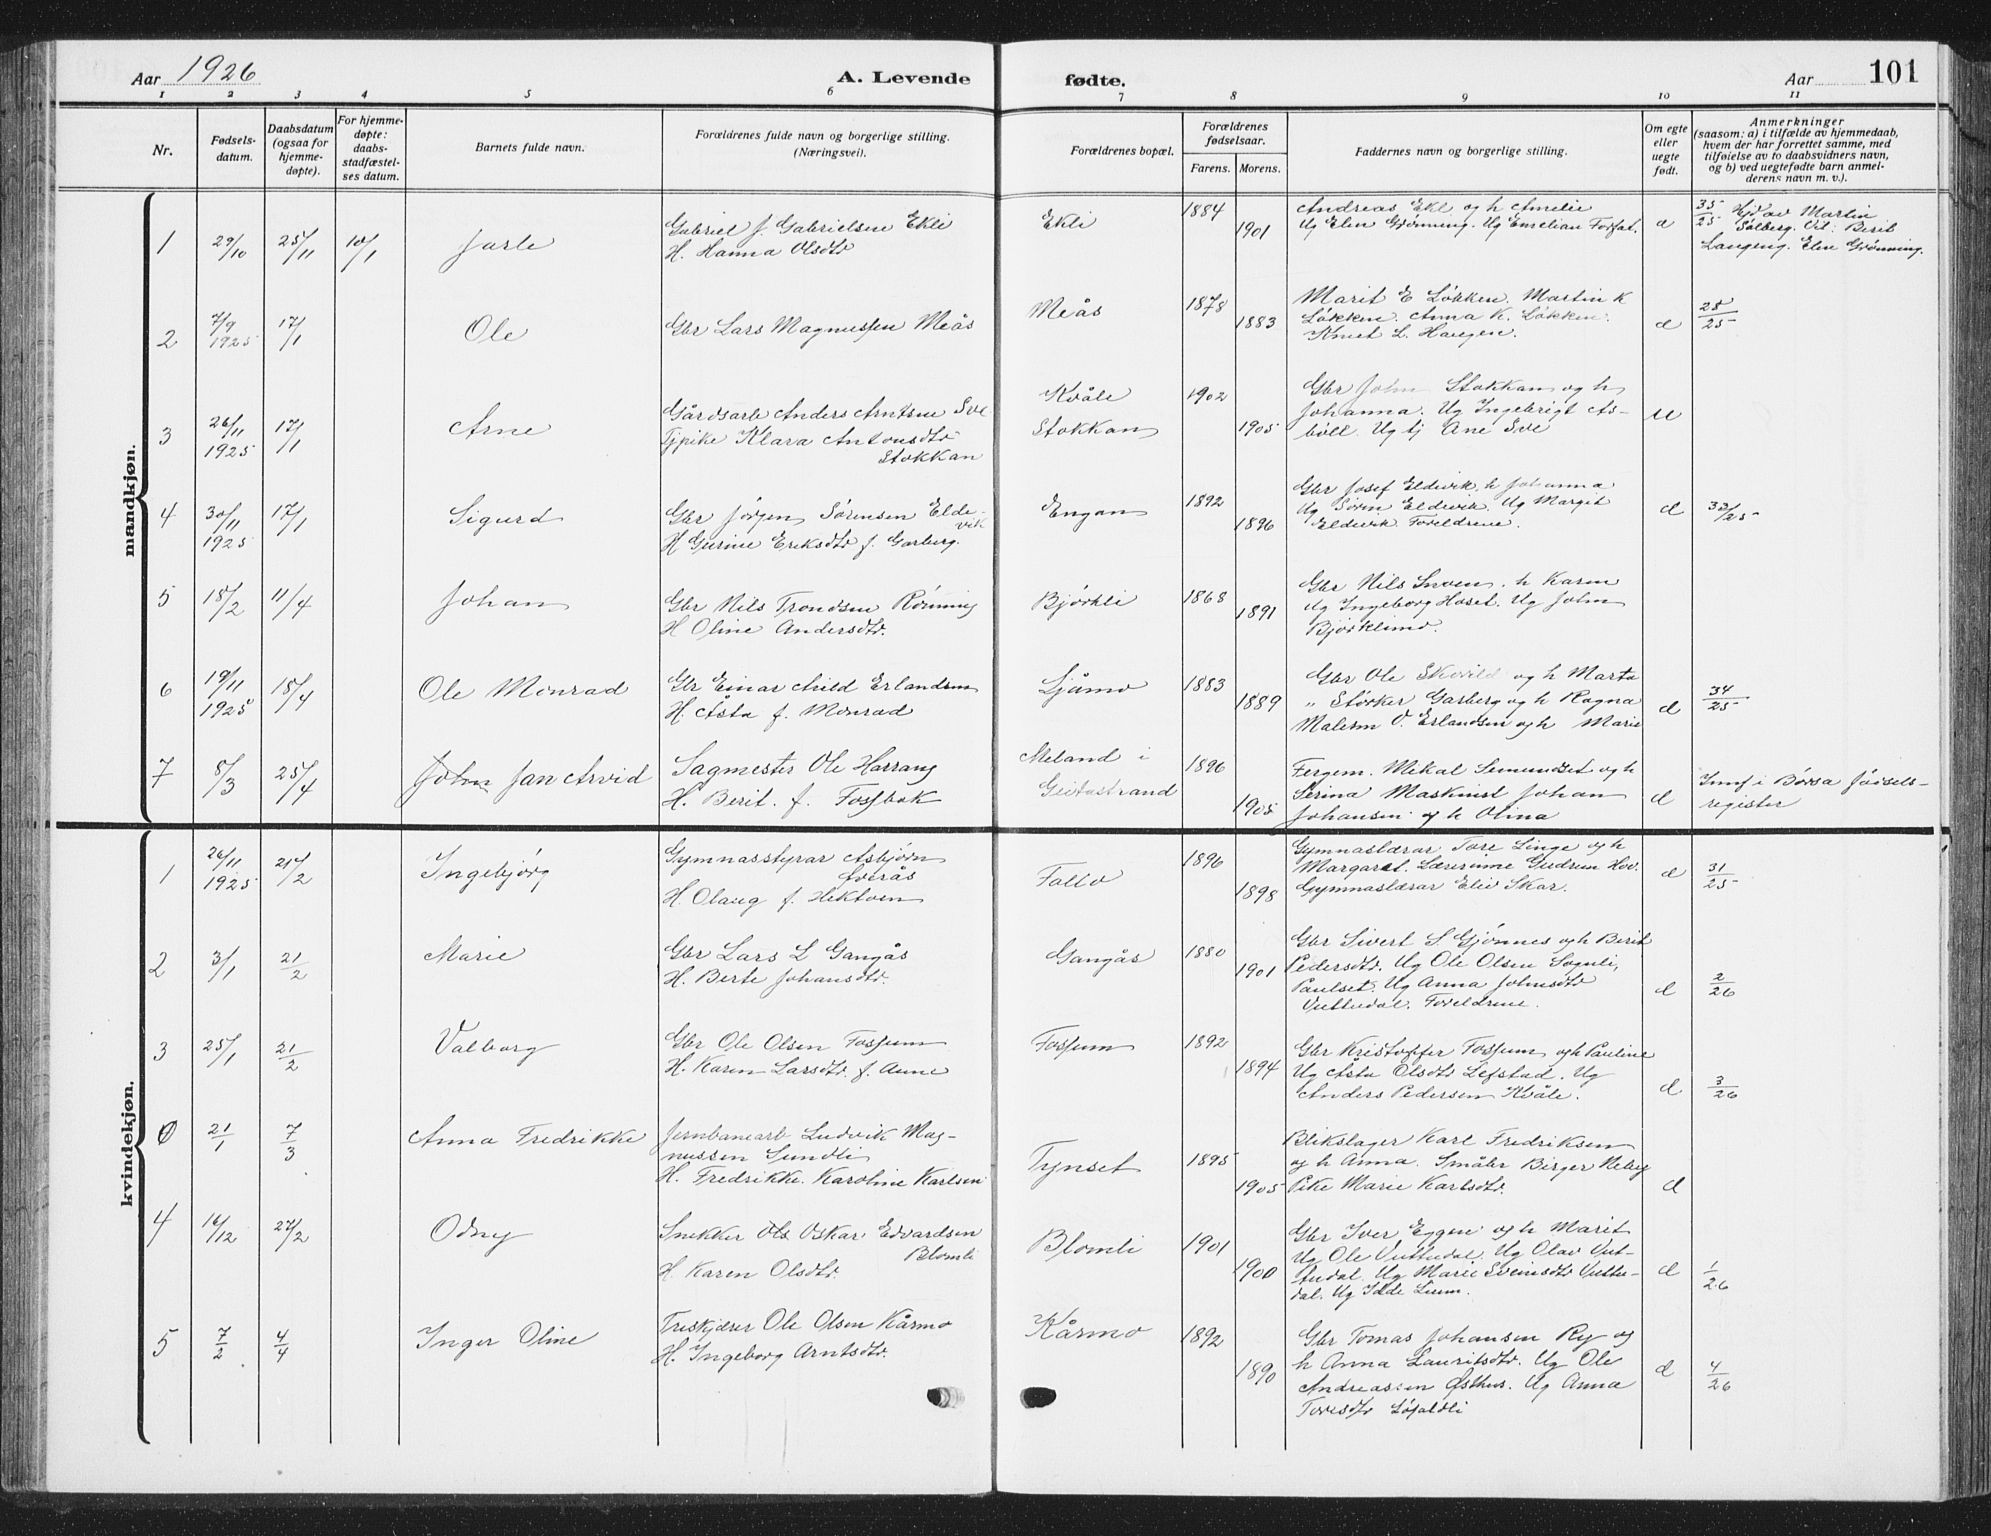 Aar 1926
A. Levende
fødte.
Aar
101
1 2 3 4 5 6 7 8 9 10 11
Nr.
Fødsels-
datum.
Daabsdatum
(ogsaa for
hjemme-
døpte).
For hjemme-
døpte:
daabs-
stadfæstel-
ses datum.
Barnets fulde navn.
Forældrenes fulde navn og borgerlige stilling.
(Næringsvei).
Forældrenes bopæl.
Forældrenes
fødselsaar.
Farens. Morens.
Faddernes navn og borgerlige stilling.
Om egte
eller
uegte
født.
Anmerkninger
(saasom: a) i tilfælde av hjemmedaab,
hvem der har forrettet samme, med
tilføielse av to daabsvidners navn,
og b) ved uegtefødte barn anmel-
derens navn m. v.).
mandkjøn.
1 29/10 25/11 10/1 Jarle
Gabriel J. Gabrielsen Ekli
H. Hanna Olsdtr
Ekli 1884 1901
Andreas Ekl og h Amelie
Ug Elen Grønning. Ug Emelian Forfat.
35/25 Hj av Martin
Solberg. Vit: Berit
Langeng. Elen Grønning.
2 7/9 1925 17/1 Ole
Gbr Lars Magnussen Meås
Meås 1878 1883
Marit E Løkken. Martin K
Løkken. Anna K. Løkken.
Knut L. Haugen.
25/25
3 26/11 1925 17/1 Arne
Gårdsarb Anders Arntsen Sve
Tjpike Klara Antonsdtr
Stokkan
Kvåle
Stokkan
1902 1905
Gbr John Stokkan og h
Johanna. Ug Ingebrigt As-
böll. Ug tj Ane Sve
u
4 30/11 1925 17/1 Sigurd
Gbr Jörgen Sörensen Elde-
vik
H Gurine Eriksdtr f. Garberg.
Engan 1892 1896
Gbr Josef Eldevik. h Johanna
Ug Sörn Eldevik. Ug Margit
Eldevik Foreldrene.
33/25
5 15/2 11/4 Johan
Gbr Nils Trondsen Rönning
H Oline Andersdtr.
Björkli 1868 1891
Gbr Nils Snoen. h Karen
Ug Ingeborg Hoset. Ug John
Björklimo.
6 19/11 1925 18/4 Ole Monrad
Gbr Einar Child Erlandsen
H. Asta f. Monrad
Ljåmo 1883 1889
Gbr Ole Skovild og h Marta
" Störker Garberg og h Ragna
Malerm O. Erlandsen og h Marie
34/25
7 8/3 25/4 John Jan Arvid
Sagmester Ole Harrang
H. Berit. f. Fossbak
Meland i
Geitastrand
1896 1905
Fergem. Mikal Semundset og h
Serina Maskinist Johan
Johansen og h Olina
Innf i Börsa födsels-
register
kvindekjøn.
1 26/11 1925 21/2 Ingebjörg
Gymnasstyrar Asbjörn
Överås
H. Olaug f. Hektoen
Follo 1896 1898
Gymnaslærar Tore Linge og h
Margaret. Lærerinne Gudrun Hov.
Gymnaslærar Eliv Skar.
31/25
2 3/1 21/2 Marie
Gbr Lars L Gangås
H. Berte Johansdtr.
Gangås 1880 1901
Gbr Sivert S Gjönnes og h Berit
Pedersdtr. Ug Ole Olsen Sognli,
Paulset. Ug Anna Johnsdtr
Vuttudal. Foreldrene.
2/26
3 25/1 21/2 Valborg
Gbr Ole Olsen Fossum
H. Karen Larsdtr. f. Aune
Fossum 1892 1894
Gbr Kristoffer Fossum og h Pauline
Ug Asta Olsdtr Lefstad. Ug
Anders Pedersen Kvåle.
d 3/26
0 21/1 7/3 Anna Fredrikke
Jernbanearb Ludvik Mag-
nussen Sundli
H. Fredrikke Karoline Karlsen
Tynset 1895 1905
Blikslager Karl Fredriksen
og h Anna. Småbr Birger Reberg
Pike Marie Karlsdtr.
4 16/12 27/2 Odny
Snekker Ole Oskar Edvardsen
Blomli
H. Karen Olsdtr.
Blomli 1901 1900
Gbr Iver Eggen og h Marit
Ug Ole Vuttudal. Ug Olav Vut-
tudal. Ug Marie Sveinsdtr Vuttu-
dal. Ug Idde Lium.
d 1/26
5 7/2 4/4 Inger Oline
Treskjærer Ole Olsen Kårmo
H. Ingeborg Arntsdtr.
Kårmo 1892 1890
Gbr Tomas Johansen Ry og
h Anna Lauritsdtr. Ug Ole
Andreassen Østhus. Ug Anna
Toresdtr Lösaldli
4/26